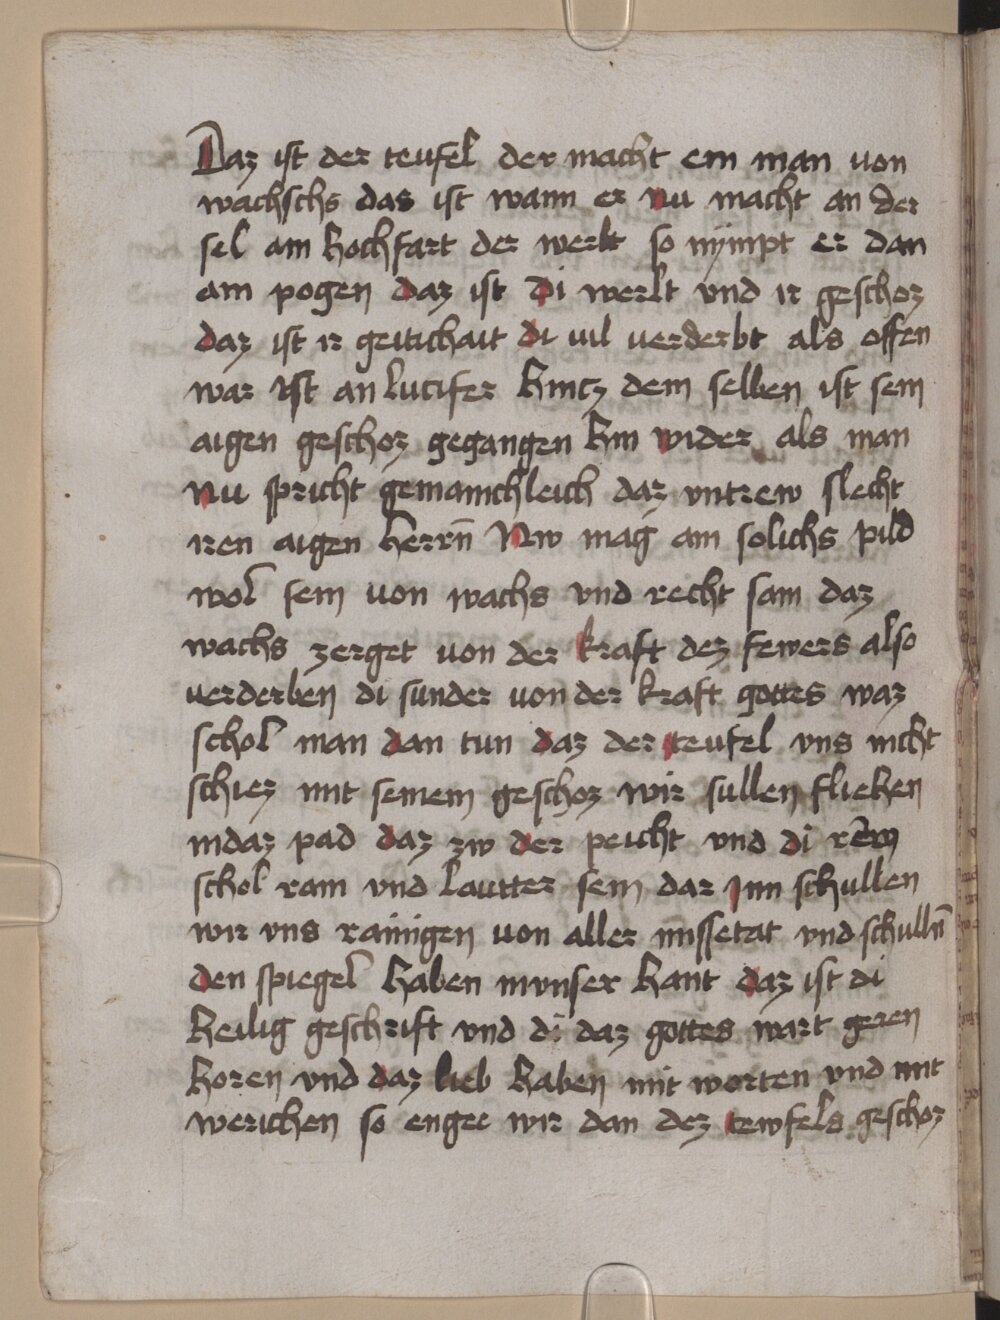 Daz ist der teufel der macht ein man von
wachschs das ist wann er nu macht an der
sel ain hochfart der werlt so nympt er dan
ain pogen daz ist di werlt vnd ir geschoz
daz ist ir geitichait di uil uerderbt als offen
war ist an lucifer hintz dem selben ist sein
aigen geschoz gegangen hin wider als man
nu spricht gemainchleich daz vntrew slecht
iren aigen herrn̄ Nw mag ain solichs pild
wol sein uon wachs vnd recht sam daz
wachs zerget uon der kraft dez fewers also
uerderben di sunder uon der kraft gottes waz
schol man dan tun daz der teufel vns nicht
schiez mit seinem geschoz wir sullen fliehen
indaz pad daz zw der peicht vnd di rew
schol rain vnd lautter sein dar Inn schullen
wir vns rainigen uon aller missetat vnd schulln̄
den spiegel haben invnser hant daz ist di
heilig geschrift vnd di daz gottes wart geren
horen vnd daz lieb haben mit worten vnd mit
werichen so enge wir dan dez tewfels geschoz